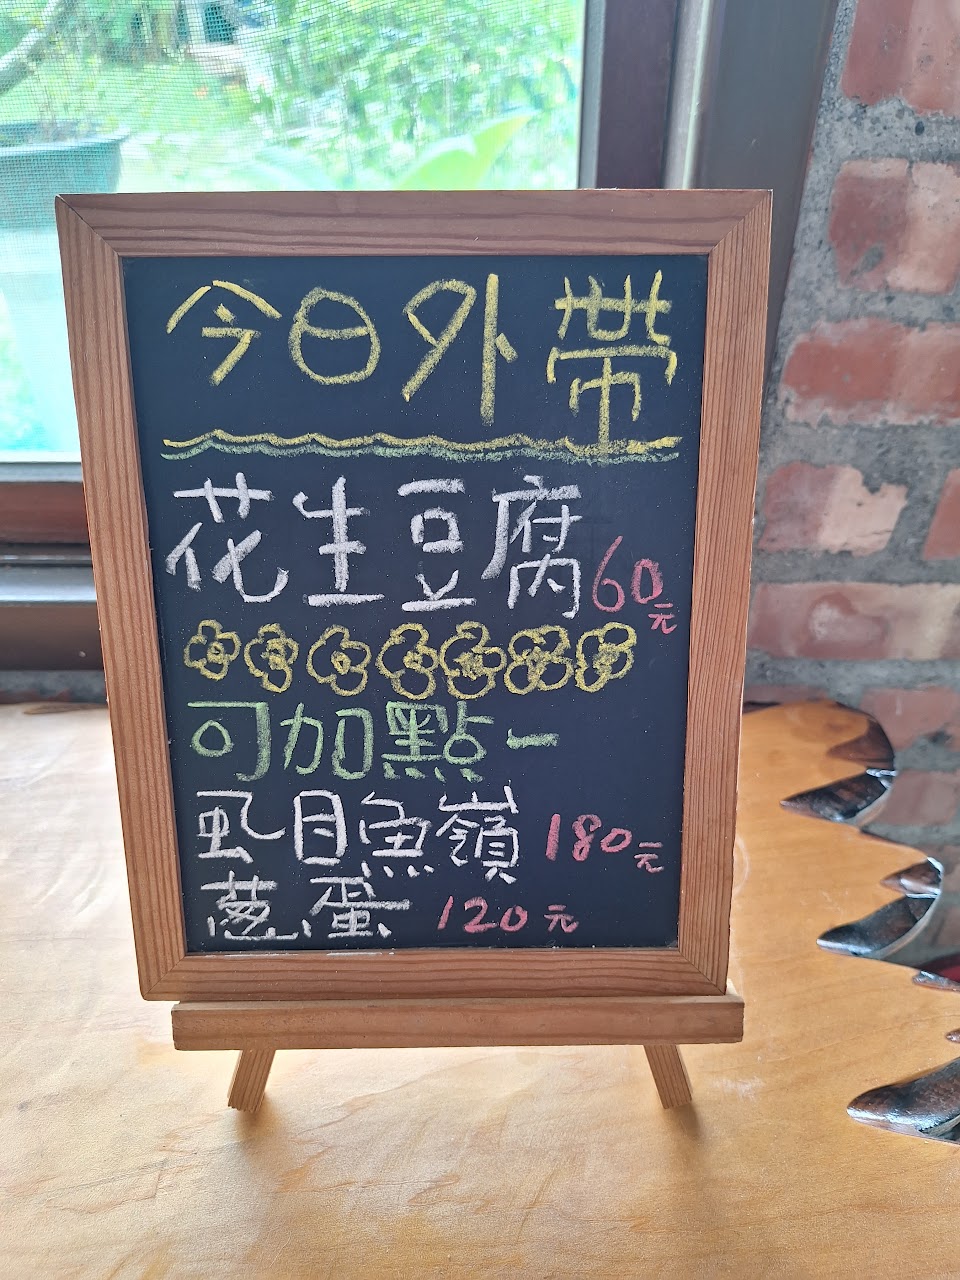 今日外帶
花生豆腐60元
可加點一
虱目魚嶺 180元
蔥蛋 120元